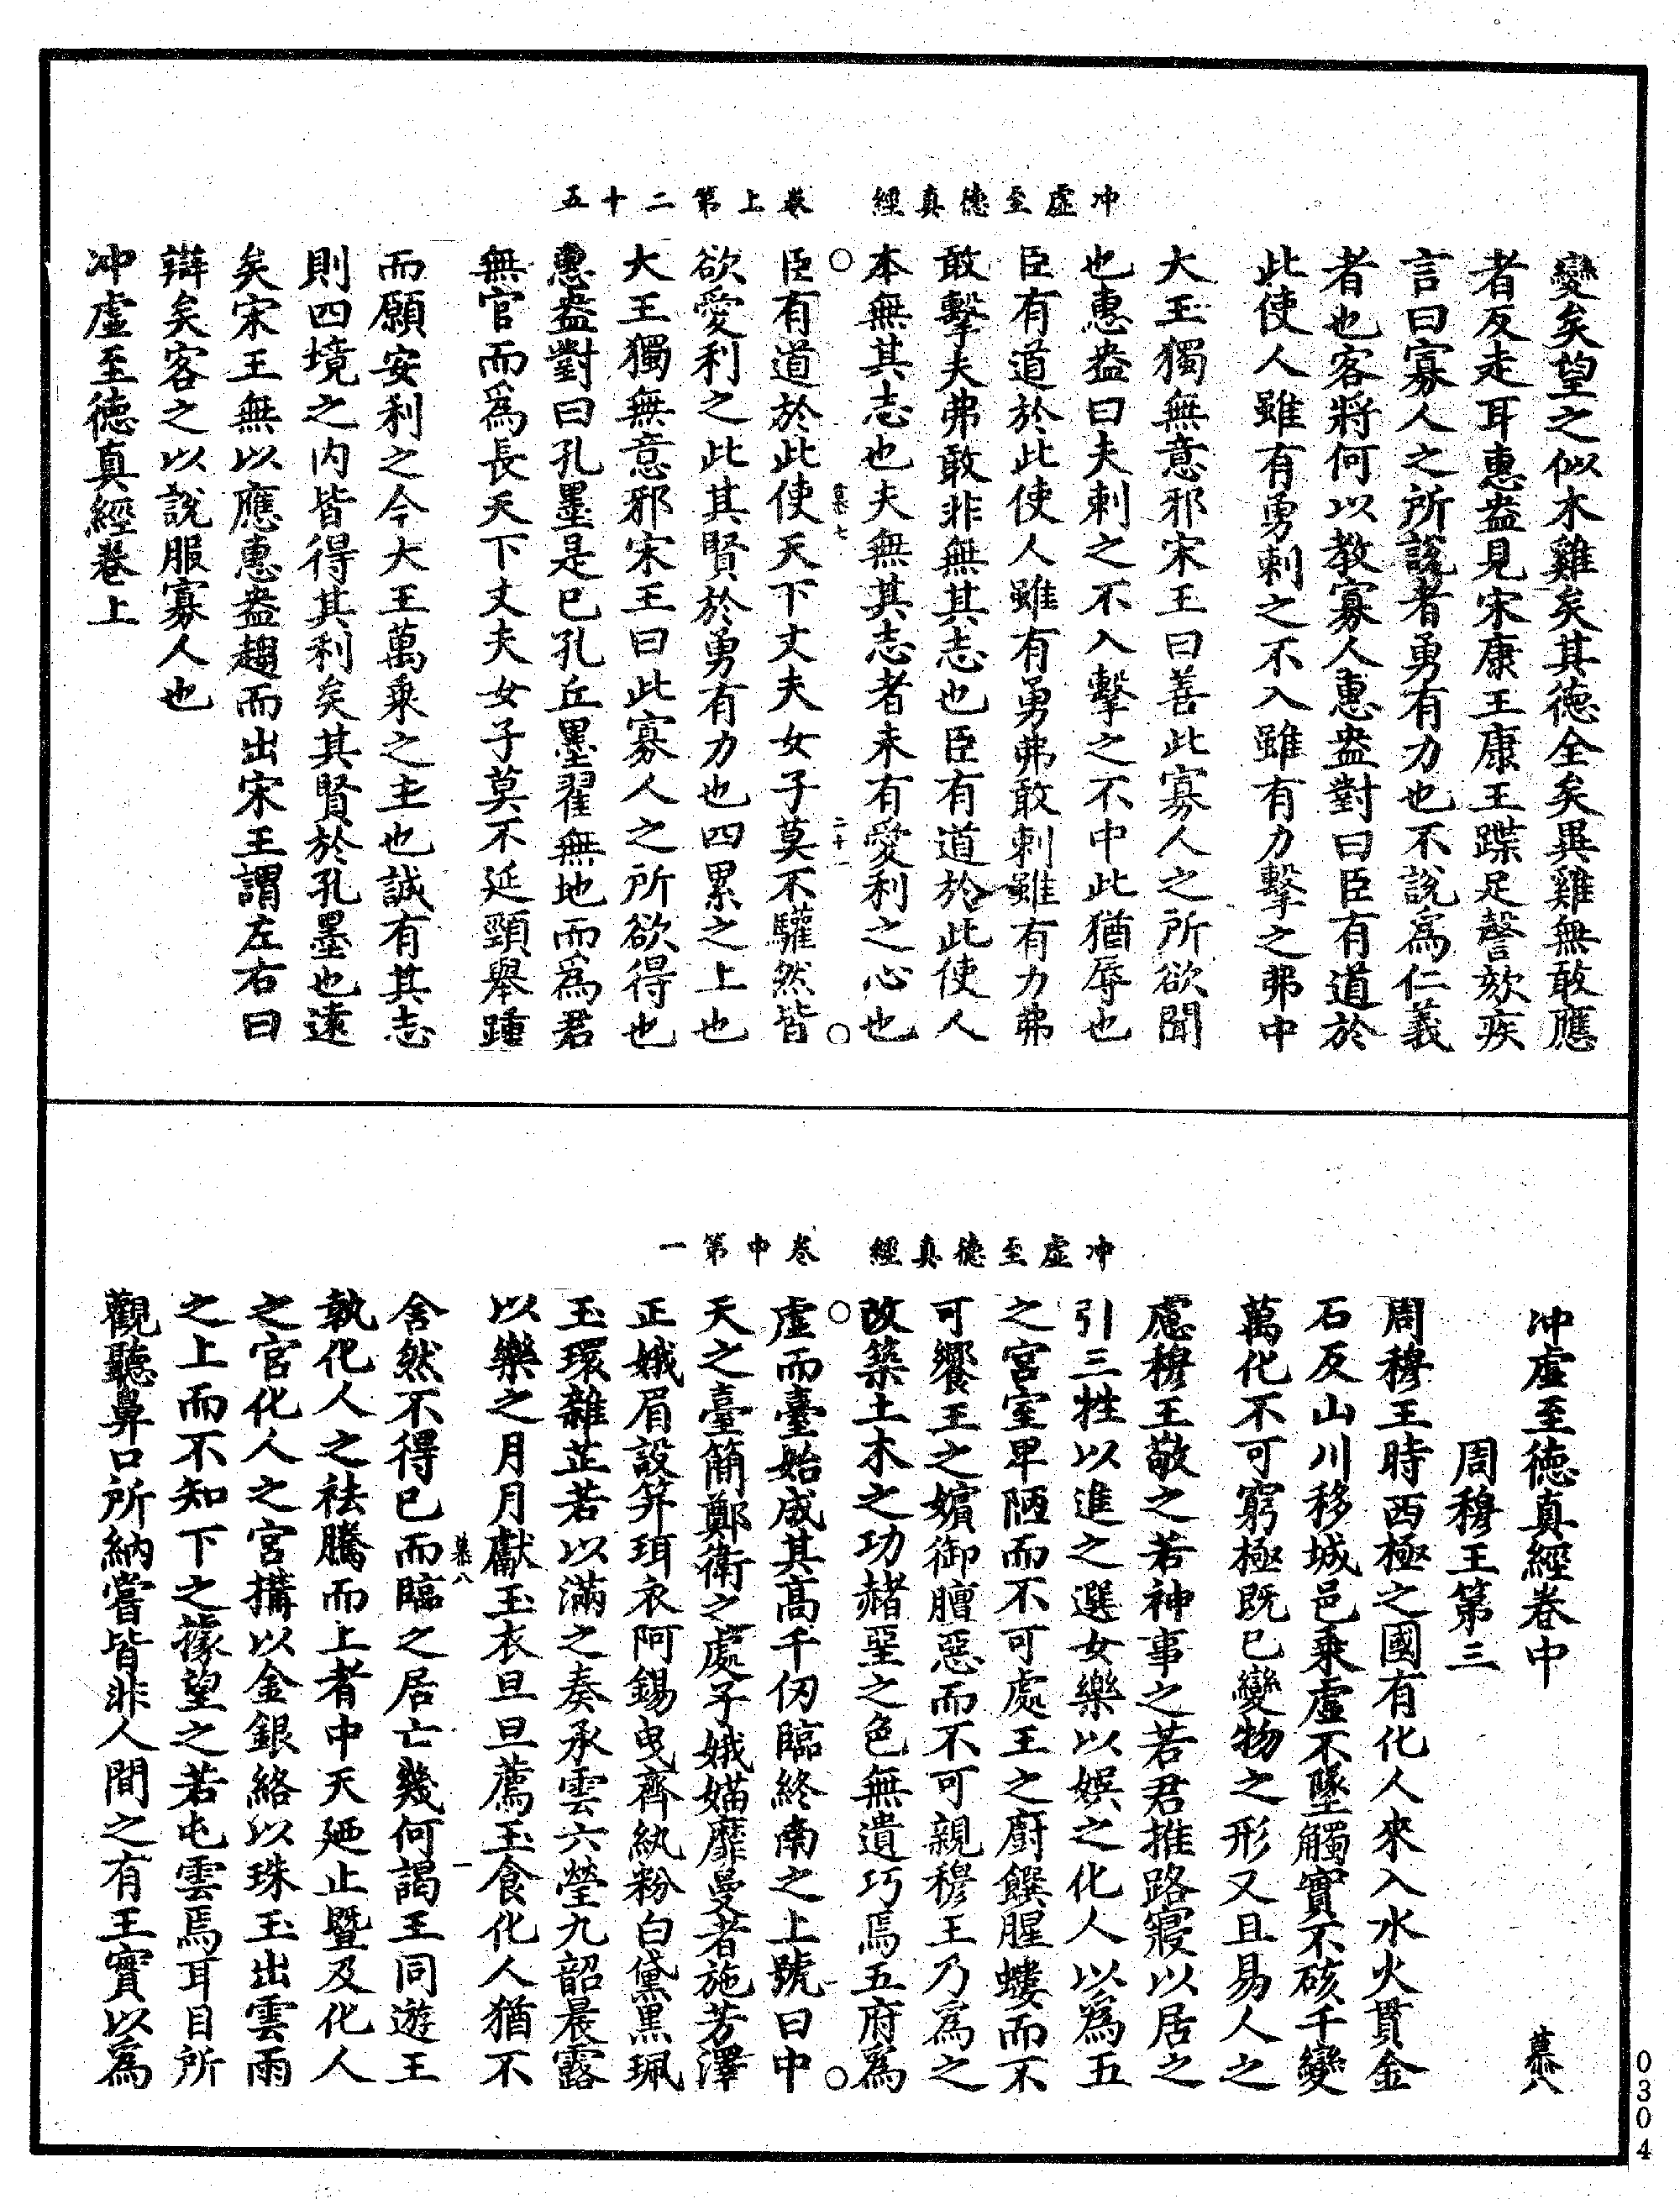 冲虚至德真經　卷上第二十五
變矣望之似木雞矣其德全矣異雞無敢應
者反走耳惠盎見宋康王康王蹀足謦欬疾
言曰寡人之所説者勇有力也不說爲仁義
者也客將何以教寡人惠盎對曰臣有道於
此使人雖有勇刺之不入雖有力擊之弗中
大王獨無意邪宋王曰善此寡人之所欲聞
也惠盎曰夫刺之不入擊之不中此猶辱也
臣有道於此使人雖有勇弗敢刺雖有力弗
敢擊夫弗敢非無其志也臣有道於此使人
本無其志也夫無其志者未有愛利之心也
○　慕七　二十一　○
臣有道於此使天下丈夫女子莫不驩然皆
欲愛利之此其賢於勇有力也四累之上也
大王獨無意邪宋王曰此寡人之所欲得也
惠盎對曰孔墨是已孔丘墨翟無地而爲君
無官而爲長天下丈夫女子莫不延頸舉踵
而願安利之今大王萬乘之主也誠有其志
則四境之内皆得其利矣其賢於孔墨也遠
矣宋王無以應惠盎趨而出宋王謂左右曰
辯矣客之以說服寡人也
冲虚至德真經卷上
冲虚至德真經　卷中第一
冲虚至德真經卷中　慕八
周穆王第三
周穆王時西極之國有化人來入水火貫金
石反山川移城邑乘虚不墜觸實不硋千變
萬化不可窮極既已變物之形又且易人之
慮穆王敬之若神事之若君推路寢以居之
引三牲以進之選女樂以娛之化人以爲五
之宮室卑陋而不可處王之廚饌腥螻而不
可饗王之嬪御膻惡而不可親穆王乃爲之
改築土木之功赭堊之色無遺巧焉五府爲
○　○
虚而臺始成其高千仞臨終南之上號曰中
天之臺簡鄭衛之處子娥媌靡曼者施芳澤
正娥眉設笄珥衣阿錫曳齊紈粉白黛黑珮
玉環雜芷若以滿之奏承雲六瑩九韶晨露
以樂之月月獻玉衣旦旦薦玉食化人猶不
慕八　一
舍然不得已而臨之居亡幾何謁王同遊王
執化人之袪騰而上者中天廼止暨及化人
之宮化人之宮搆以金銀絡以珠玉出雲雨
之上而不知下之據望之若屯雲焉耳目所
觀聽鼻口所納嘗皆非人間之有王實以爲
0304